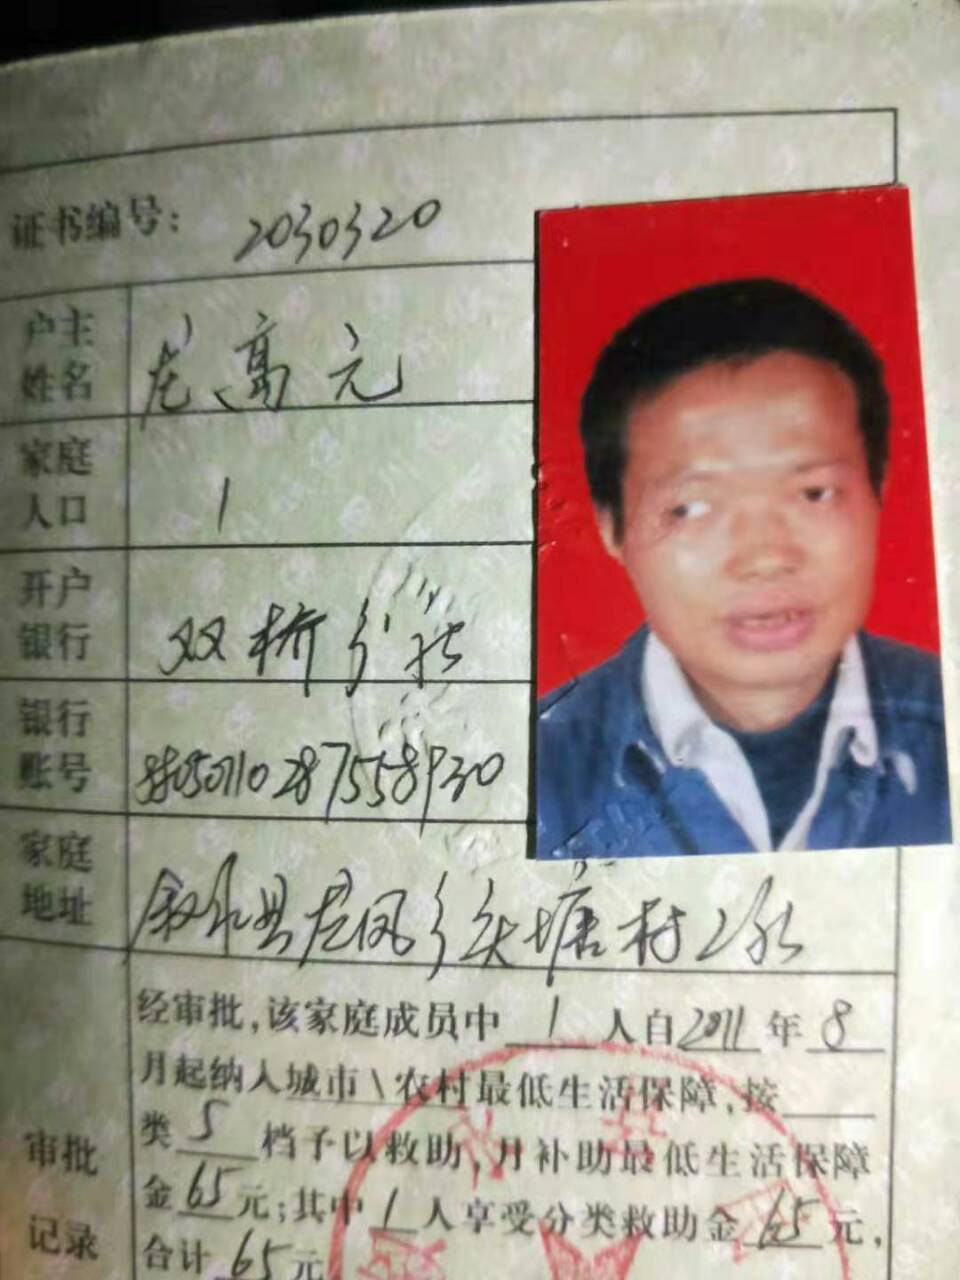 证书编号: 2030320
户主姓名 龙高元
家庭人口 1
开户银行 双桥分社
银行账号
家庭地址 叙永县龙凤乡头塘村2社
审批记录
经审批,该家庭成员中 1 人自2011年 8
月起纳入城市\农村最低生活保障,按
类 5 档予以救助,月补助最低生活保障
金 65 元;其中 1 人享受分类救助金 65 元,
合计 65 元